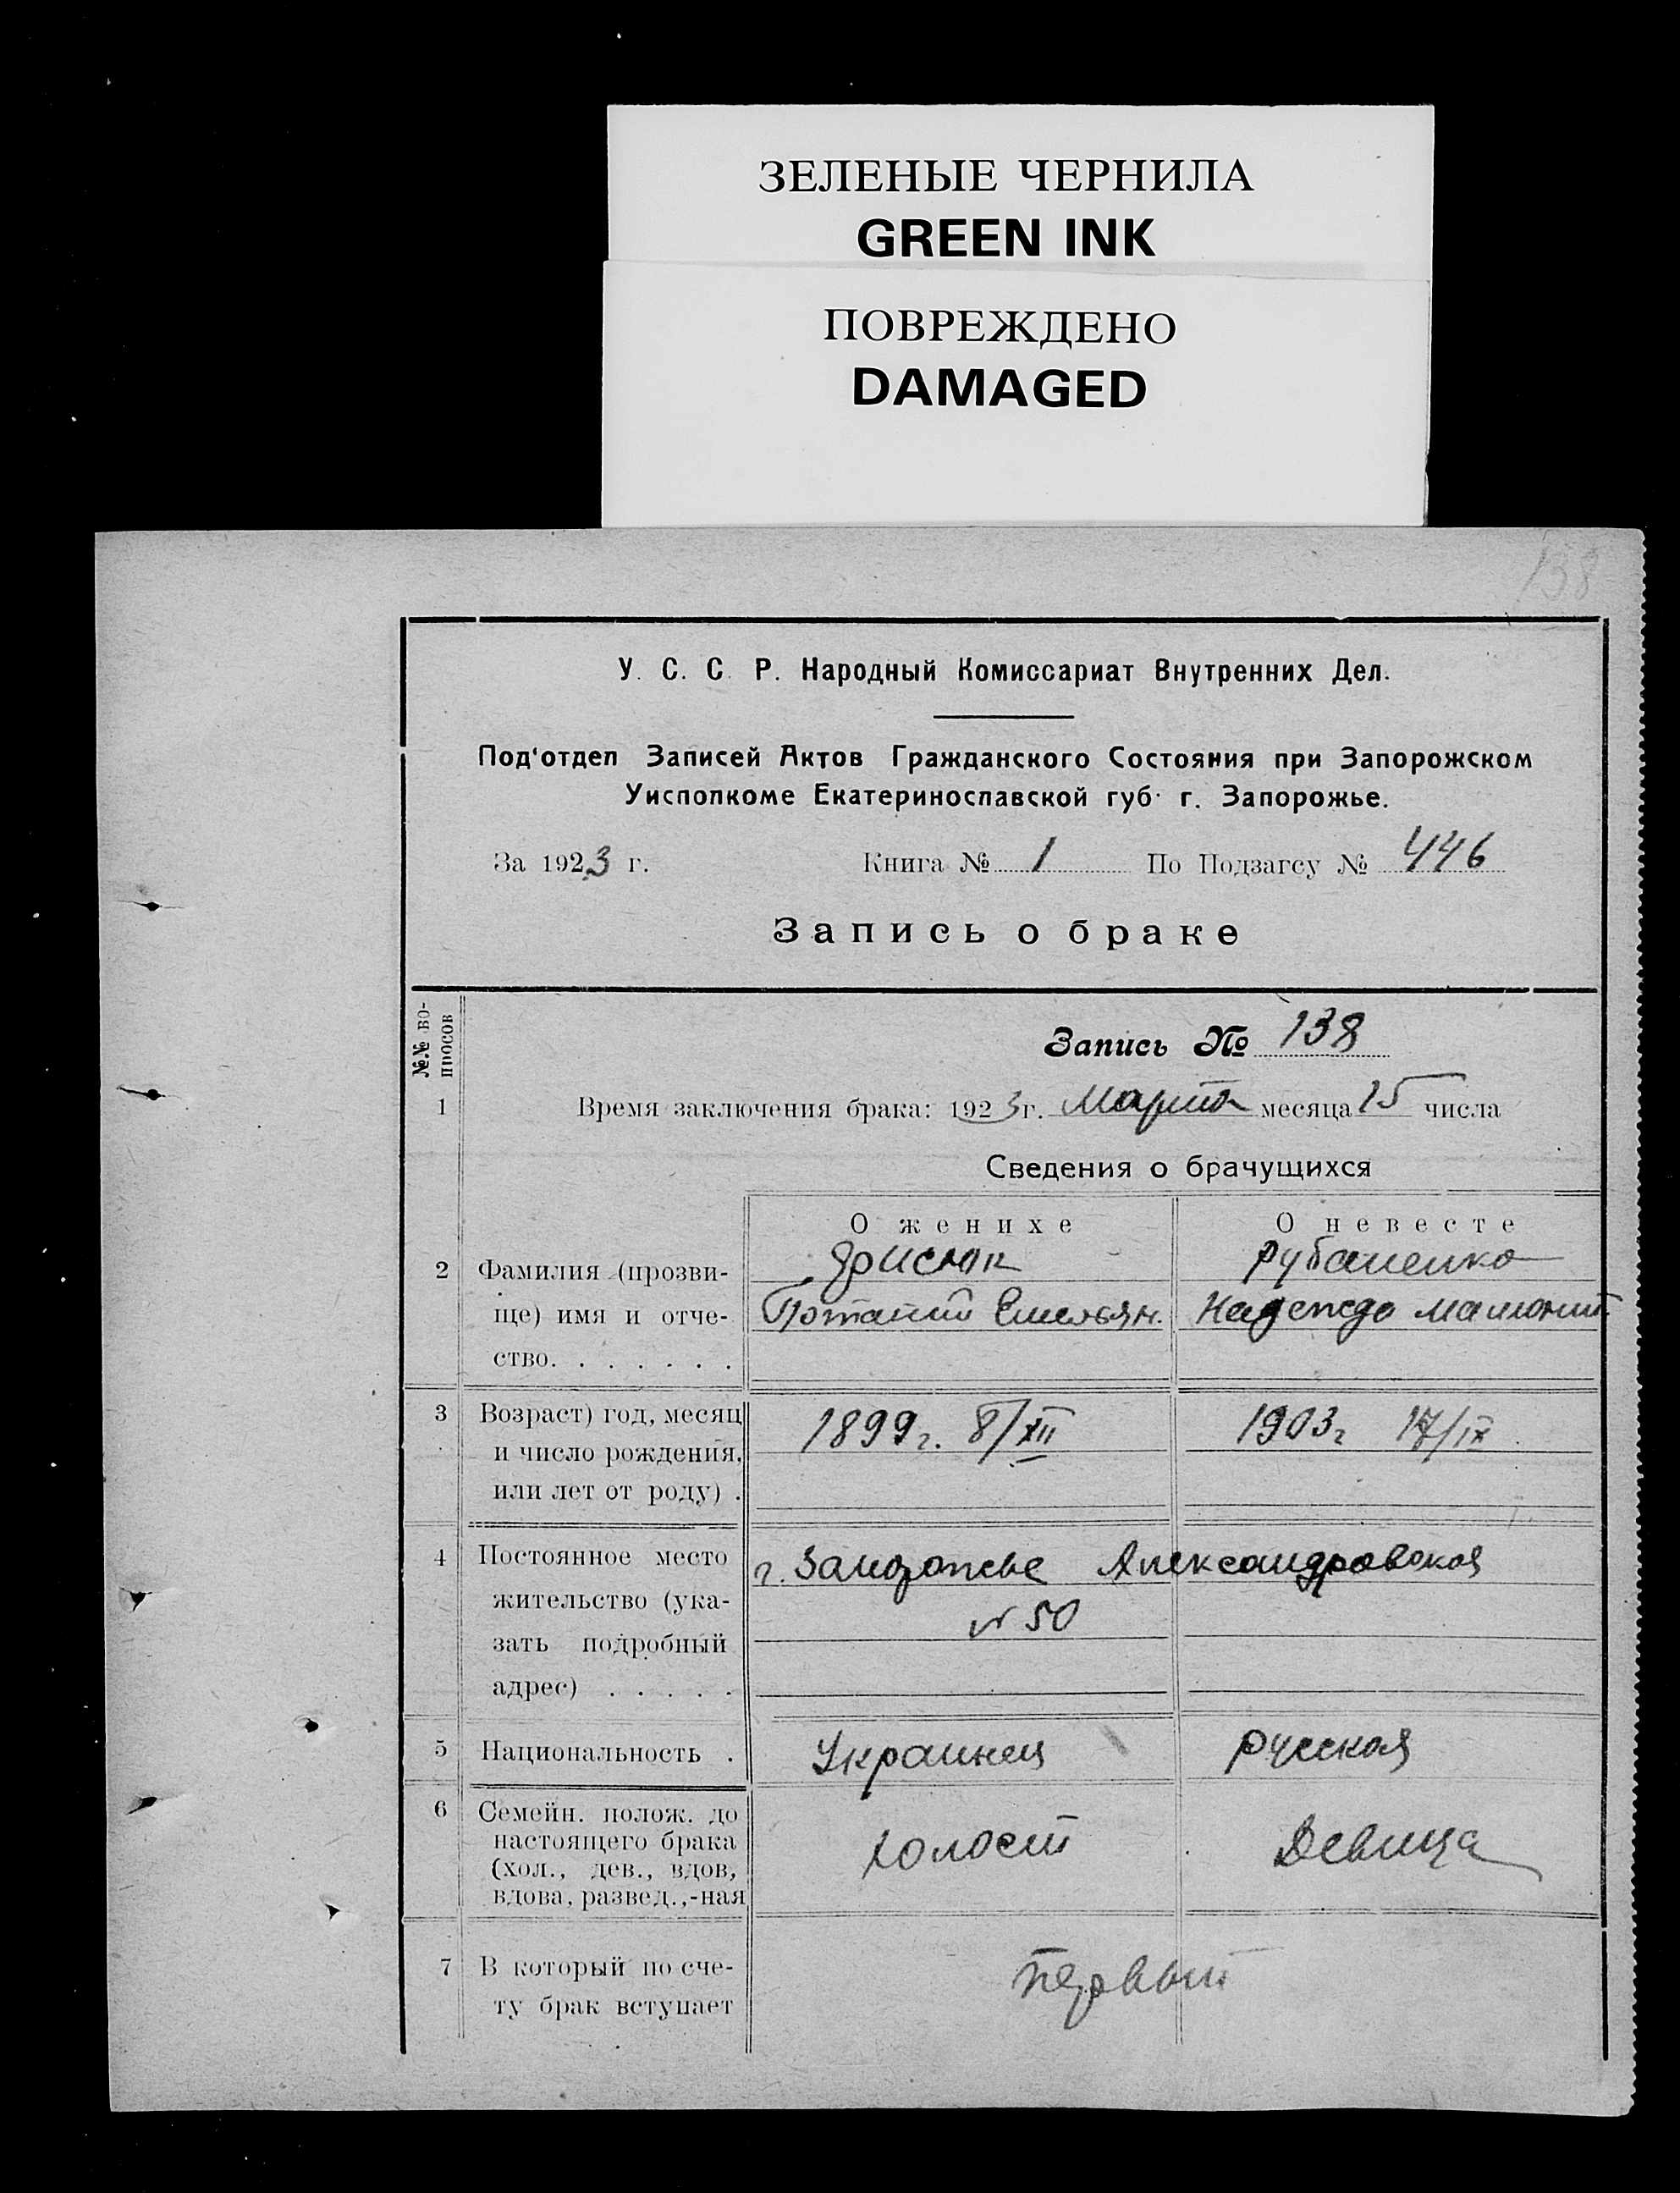 ЗЕЛЕНЫЕ ЧЕРНИЛА
GREEN INK
ПОВРЕЖДЕНО
DAMAGED
138
У. С. С. Р. Народный Комиссариат Внутренних Дел.
Под'отдел Записей Актов Гражданского Состояния при Запорожском
Уисполкоме Екатеринославской губ. г. Запорожье.
За 1923 г. Книга № 1 По Подзагсу № 446
Запись о браке
№№ во-
просов
Запись № 138
1 Время заключения брака: 1923 г. Марта месяца 15 числа
Сведения о брачущихся
О женихе О невесте
2 Фамилия (прозви- Рубаненко
ще) имя и отче- Потапий Емельян. Надежда
ство. . . . . . .
3 Возраст) год, месяц 1899 г. 8/XII 1903 г 17/IX
и число рождения,
или лет от роду) .
4 Постоянное место г. Запорожье Александровская
жительство (ука- № 50
зать подробный
адрес) . . . . .
5 Национальность . Украинец Русская
6 Семейн. полож. до
настоящего брака холост Девица
(хол., дев., вдов,
вдова, развед.,-ная
7 В который по сче- первый
ту брак вступает